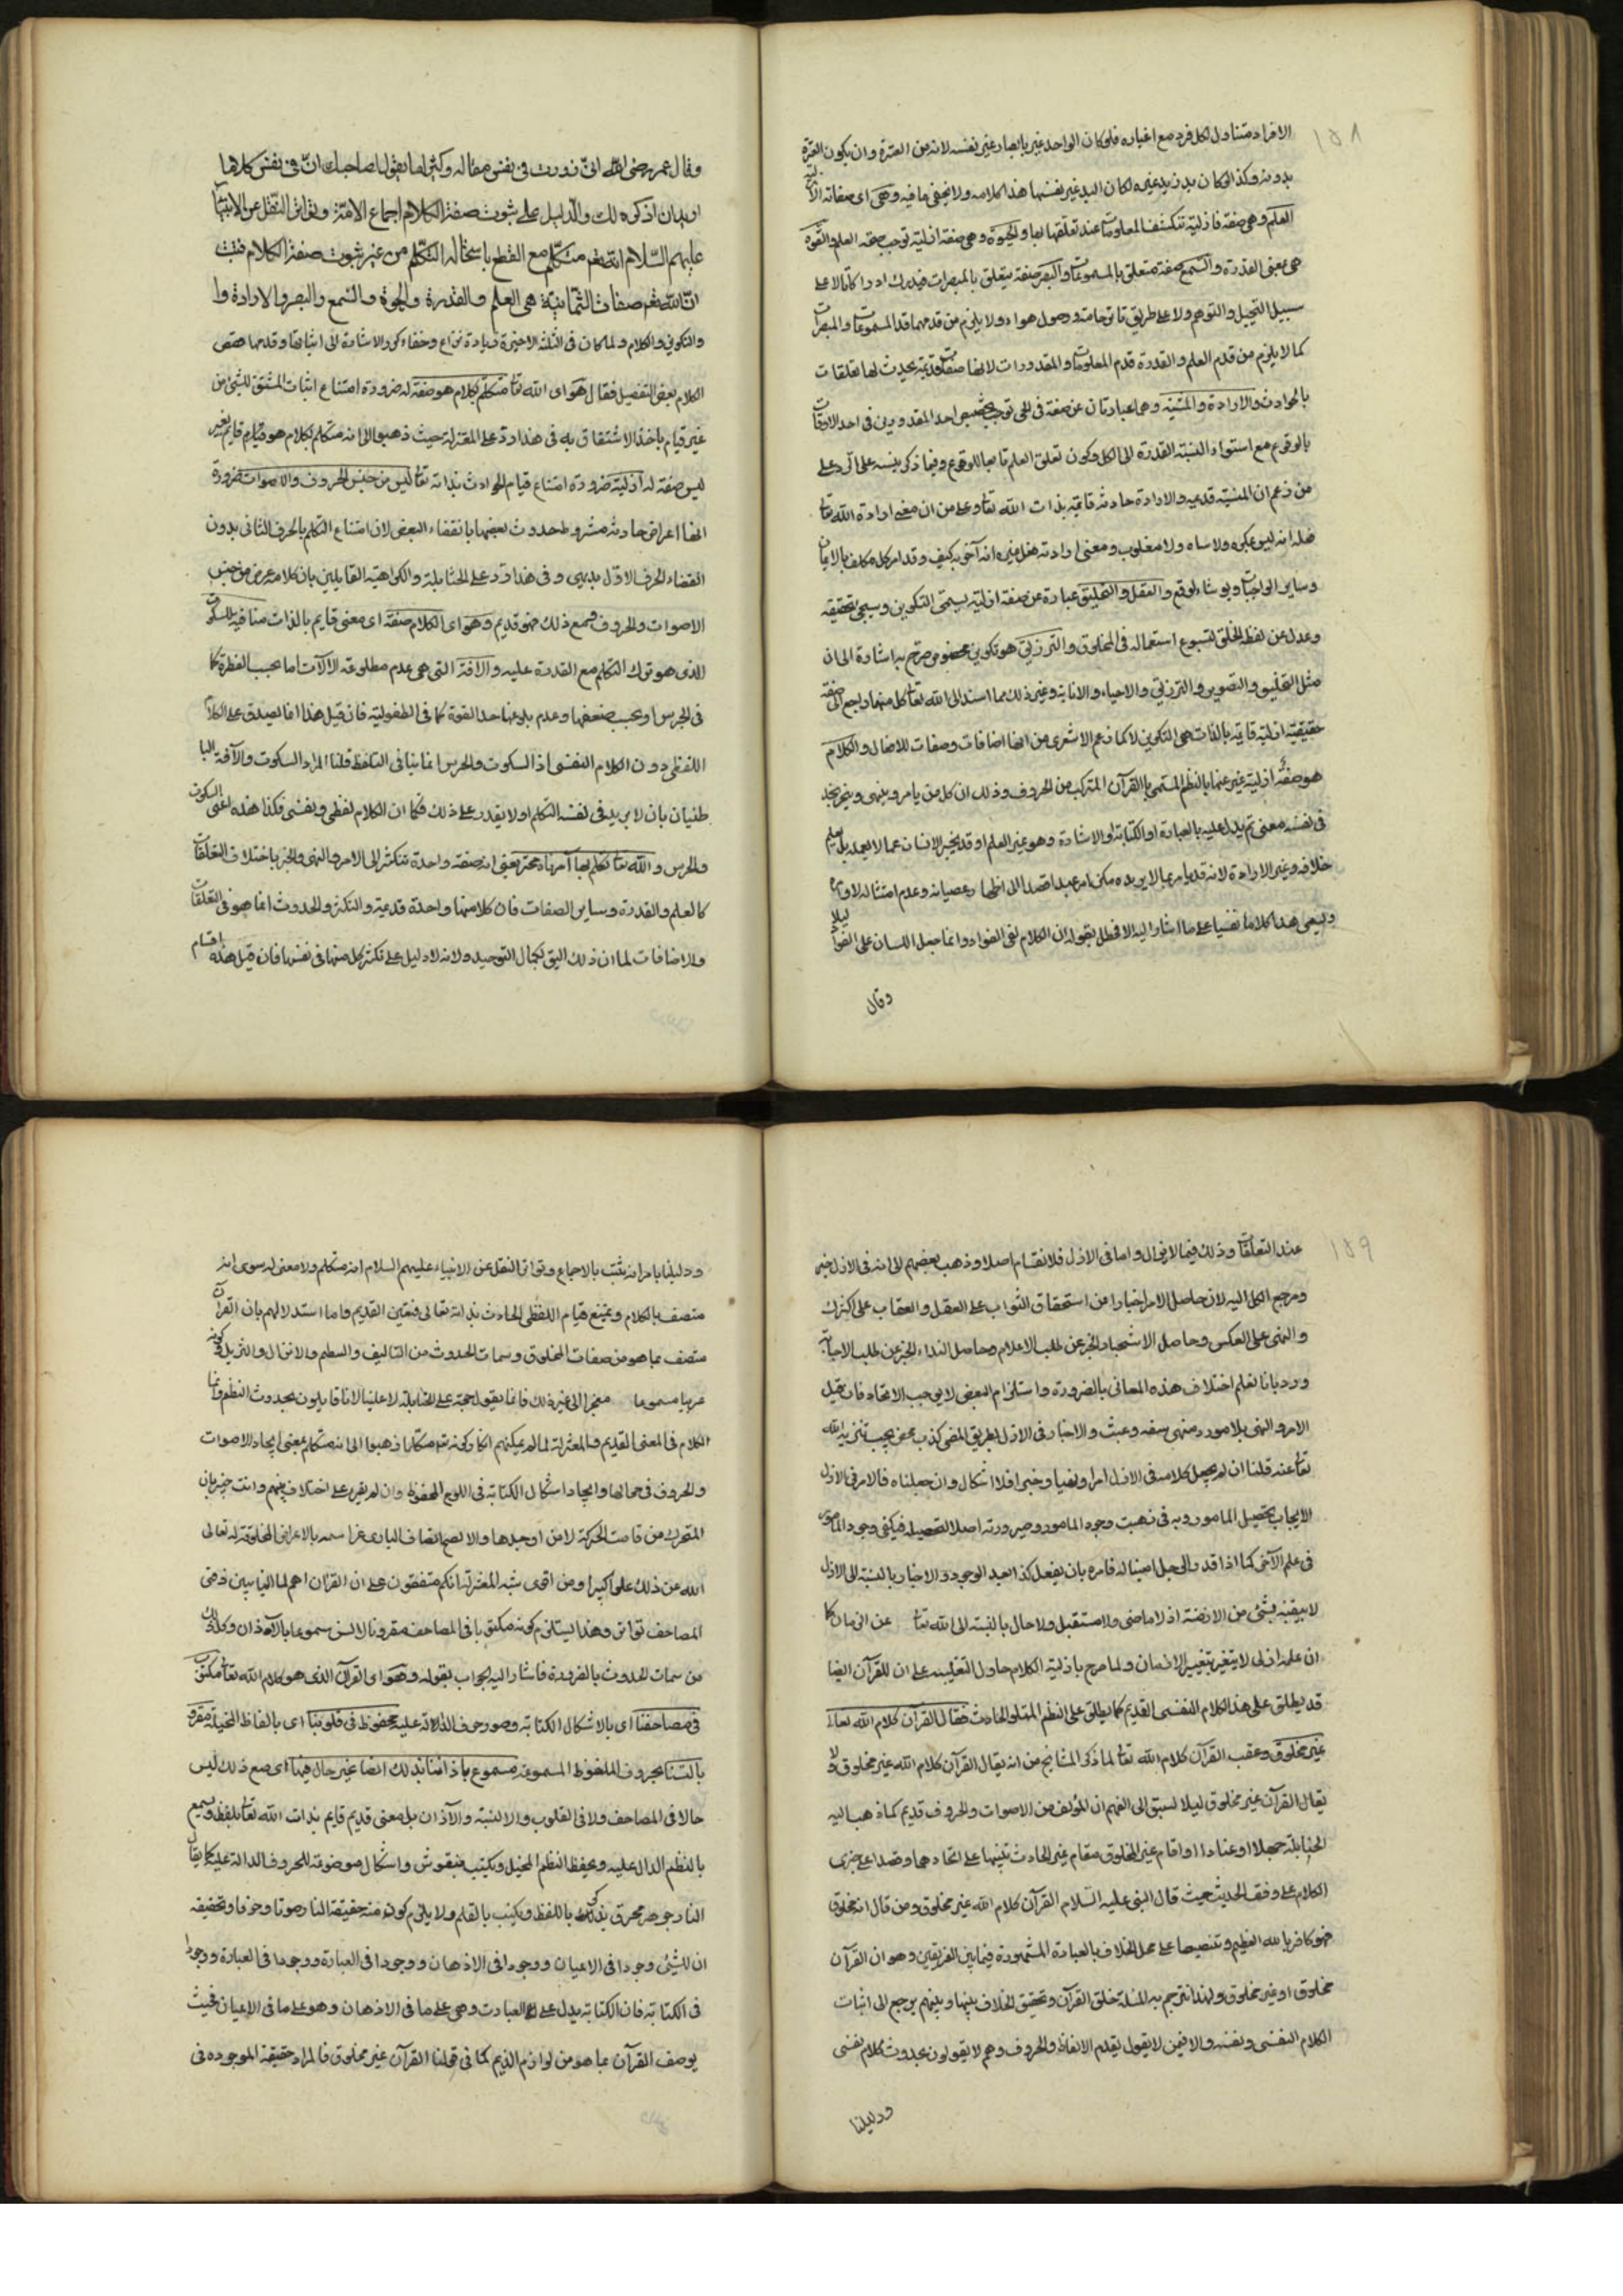 ١٥٨
الافراد متناول لكل فرد مع اغياره فلو كان الواحد غيرها لصار غير نفسه لانه من العشرة وان يكون العشرة
بدونه وكذا لو كان يد زيد غيره لكان اليد غير نفسها هذا كلامه ولا يخفى ما فيه وهي اى صفاته الازلية
العلم وهى صفة ازلية تنكشف المعلومات عند تعلقها بها والحيوة وهى صفة ازلية توجب صحة العلم والقوة
هى بمعنى القدرة والسمع صفة تتعلق بالمسموعات والبصر صفة يتعلق بالمبصرات فيدرك ادراكا تاما لا على
سبيل التخيل والتوهم ولا على طريق تاثر حاسة ووصول هواء ولا يلزم من قدمهما قدم المسموعات والمبصرات
كما لا يلزم من قدم العلم والقدرة قدم المعلومات والمقدورات لانها صفات قديمة يحدث لها تعلقات
بالحوادث والارادة والمشية وهما عبارتان عن صفة فى الحى توجب تخصيص احد المقدورين فى احد الاوقات
بالوقوع مع استواء النسبة القدرة الى الكل وكون تعلق العلم تابعا للوقوع وفيما ذكر تنبيه على الرد على
من زعم ان المشية قديمة والارادة حادثة قائمة بذات الله تعالى وعلى من ان معنى ارادة الله تعالى
فعله انه ليس بمكره ولا ساه ولا مغلوب ومعنى ارادته فعل غيره انه آمر به كيف وقد امر كل مكلف بالايمان
وساير الواجبات ولو شاء لوقع والفعل والتخليق عبارة عن صفة ازلية يسمى التكوين وسيجئ تحقيقه
وعدل عن لفظ الخلق لشيوع استعماله فى المخلوق والترزيق هو تكوين مخصوص صرح به اشارة الى ان
مثل التخليق والتصوير والترزيق والاحياء والاماتة وغير ذلك مما اسند الى الله تعالى كل منها راجع الى صفة
حقيقية ازلية قائمة بالذات هى التكوين لا كما زعم الاشعرى من انها اضافات وصفات للافعال والكلام
هو صفة ازلية عبر عنها بالنظم المسمى بالقرآن المتركب من الحروف وذلك ان كل من يامر وينهى ويخبر يجد
فى نفسه معنى ثم يدل عليه بالعبارة او الكتابة او الاشارة وهو غير العلم اذ قد يخبر الانسان عما لا يعلمه بل يعلم
خلافه وغير الارادة لانه قد يامر بما لا يريده كمن امر عبدا قصدا الى اظهار عصيانه وعدم امتثاله لاوامره
ويسمى هذا كلاما نفسيا على ما اشار اليه الاخطل بقوله ان الكلام لفى الفؤاد وانما جعل اللسان على الفؤاد دليلا
وقال
وقال عمر رضى الله انى زورت فى نفسى مقالة وكثيرا ما يقول لصاحبك ان فى نفسى كلاما
اريد ان اذكره لك والدليل على ثبوت صفة الكلام اجماع الامة وتواتر النقل عن الانبياء
عليهم السلام انه تعم متكلم مع القطع باستحالة التكلم من غير ثبوت صفة الكلام فثبت
ان الله تعم صفات الثمانية هى العلم والقدرة والحيوة والسمع والبصر والارادة وا
والتكوين والكلام ولما كان فى الثلثة الاخيرة زيادة نزاع وخفاء كرر الاشارة الى اثباتها وقدمها فصل
الكلام بعض التفصيل فقال هو اى الله تعالى متكلم بكلام هو صفة له ضرورة امتناع اثبات المشتق للشئ من
غير قيام ماخذ الاشتقاق به فى هذا رد على المعتزلة حيث ذهبوا الى انه متكلم بكلام هو قيام قايم بغيره
ليس صفة له ازلية ضرورة امتناع قيام الحوادث بذاته تعالى ليس من جنس الحروف والاصوات ضرورة
انها اعراض حادثة مشروط حدوث بعضها بانقضاء البعض لان امتناع التكلم بالحرف الثانى بدون
انقضاء الحرف الاول بديهى وفى هذا رد على الحنابلة والكراهية القايلين بان كلامه عرض من جنس
الاصوات والحروف ومع ذلك فهو قديم وهو اى الكلام صفة اى معنى قايم بالذات منافية للسكوت
الذى هو ترك التكلم مع القدرة عليه والافة التى هى عدم مطاوعة الآلات اما بحسب الفطرة كما
فى الخرس او بحسب ضعفها وعدم بلوغها حد القوة كما فى الطفولية فان قيل هذا انما يصدق على الكلام
اللفظى دون الكلام النفسى اذ السكوت والخرس انما ينافى التلفظ قلنا المراد السكوت والآفة البا
طنيان بان لا يريد فى نفسه التكلم او لا يقدر على ذلك فكما ان الكلام لفظى ونفسى فكذا ضده اعنى السكوت
والخرس والله تعالى متكلم بها آمر ناه مخبر يعنى انه صفة واحدة تتكثر الى الامر والنهى والخبر باختلاف التعلقات
كالعلم والقدرة وساير الصفات فان كلا منها واحدة قديمة والتكثر والحدوث انما هو فى التعلقات
والاضافات لما ان ذلك اليق بكمال التوحيد ولانه لا دليل على تكثر كل منها فى نفسها فان قيل هذه اقسام
١٥٩
عند التعلقات وذلك فيما لا يزال واما فى الازل فلا انقسام اصلا وذهب بعضهم الى انه فى الازل خبر
ومرجع الكل اليه لان حاصل الامر اخبارا عن استحقاق الثواب على الفعل والعقاب على الترك
والنهى على العكس وحاصل الاستخبار الخبر عن طلب الاعلام وحاصل النداء الخبر عن طلب الاجابة
ورد بانا نعلم اختلاف هذه المعانى بالضرورة واستلزام البعض لا يوجب الاتحاد فان قيل
الامر والنهى بلا مامور ومنهى سفه وعبث والاخبار فى الازل بطريق المضى كذب محض يجب تنزيه الله
تعالى عنه قلنا ان لم يجعل كلامه فى الازل امرا ونهيا وخبرا فلا اشكال وان جعلناه فالامر فى الازل
لايجاب تحصيل المامور به فى وقت وجود المامور وصيرورته اهلا لتحصيله فيكفى وجود المامور
فى علم الآمر كما اذا قدر الرجل ابنا له فامره بان يفعل كذا بعد الوجود والاخبار بالنسبة الى الازل
لا يتصف بشئ من الازمنة اذ لا ماضى ولا مستقبل ولا حال بالنسبة الى الله تعالى عن الزمان كما
ان علمه ازلى لا يتغير بتغيير الازمان ولما صرح بازلية الكلام حاول التنبيه على ان القرآن ايضا
قد يطلق على هذا الكلام النفسى القديم كما يطلق على النظم المتلو الحادث فقال القرآن كلام الله تعالى
غير مخلوق وعقب القرآن كلام الله تعالى لما ذكر المشايخ من انه يقال القرآن كلام الله غير مخلوق ولا
يقال القرآن غير مخلوق ليلا يسبق الى الفهم ان المؤلف من الاصوات والحروف قديم كما ذهب اليه
الحنابلة جهلا او عنادا او اقام غير المخلوق مقام غير الحادث تنبيها على اتحادهما وقصدا على جرى
الكلام على وفق الحديث حيث قال النبى عليه السلام القرآن كلام الله غير مخلوق ومن قال انه مخلوق
فهو كافر بالله العظيم وتنصيصا على محل الخلاف بالعبارة المشهورة فيما بين الفريقين وهو ان القرآن
مخلوق او غير مخلوق ولهذا تترجم به المسئلة خلق القرآن وتحقيق الخلاف بيننا وبينهم يرجع الى اثبات
الكلام النفسى ونفيه والا فنحن لا نقول بقدم الالفاظ والحروف وهم لا يقولون بحدوث كلام نفسى
ودليلنا
ودليلنا ما مر انه ثبت بالاجماع وتواتر النقل عن الانبياء عليهم السلام انه متكلم ولا معنى له سوى انه
متصف بالكلام ويمتنع قيام اللفظى الحادث بذاته تعالى فتعين القديم واما استدلالهم بان القرآن
متصف بما هو من صفات المخلوق وسمات الحدوث من التاليف والنظم والانزال والتنزيل وكونه
عربيا مسموعا معجزا الى غير ذلك فانما يقول حجة على الحنابلة لا علينا لانا قايلون بحدوث النظم وانما
الكلام فى المعنى القديم والمعتزلة لما لم يمكنهم انكار كونه تعم متكلما ذهبوا الى انه متكلم بمعنى ايجاد الاصوات
والحروف فى محالها او ايجاد اشكال الكتابة فى اللوح المحفوظ وان لم يقرء على اختلاف بينهم وانت خبير بان
المتحرك من قامت الحركة لا من اوجدها والا لصح اتصاف البارى عز اسمه بالاعراض المخلوقة له تعالى
الله عن ذلك علوا كبيرا ومن اقوى شبه المعتزلة انكم متفقون على ان القران اسم لما الينا بين دفتى
المصاحف تواتر وهذا يستلزم كونه مكتوبا فى المصاحف مقروا بالالسن مسموعا بالآذان وكل ذلك
من سمات الحدوث بالضرورة فاشار اليه الجواب بقوله وهو اى القرآن الذى هو كلام الله تعالى مكتوب
فى مصاحفنا اى بالاشكال الكتابة وصور حروف الدالة عليه محفوظ فى قلوبنا اى بالفاظ المخيلة مقرو
بالسنتنا بحروف الملفوظ المسموعة مسموع باذاننا بذلك ايضا غير حال فيها اى مع ذلك ليس
حالا فى المصاحف ولا فى القلوب والالسنة والآذان بل معنى قديم قايم بذات الله تعالى يلفظ ويسمع
بالنظم الدال عليه ويحفظ النظم المخيل ويكتب بنقوش واشكال موضوعة للحروف الدالة عليه كما يقال
النار جوهر محرق يذكر باللفظ ويكتب بالقلم ولا يلزم كون منه حقيقة النار صوتا وحرفا وتحقيقه
ان للشئ وجودا فى الاعيان ووجودا فى الاذهان ووجودا فى العبارة ووجودا
فى الكتابة فان الكتابة يدل على العبارت وهى على ما فى الاذهان وهو على ما فى الاعيان فحيث
يوصف القرآن بما هو من لوازم القديم كما فى قولنا القرآن غير مخلوق فالمراد حقيقة الموجوده فى